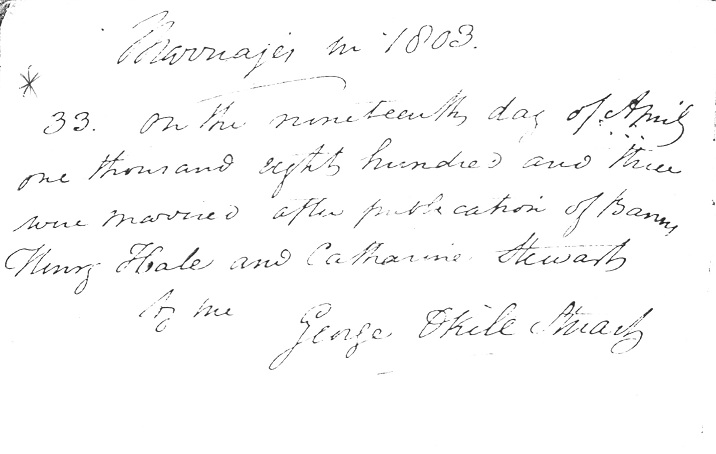 Marriages in 1803.
33. On the nineteenth day of April
one thousand eight hundred and three
were married after publication of Banns
Henry Hale and Catharine Stewart
by me
George Okill Stuart